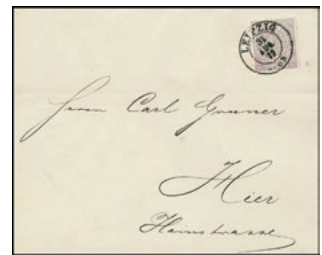 LEIPZIG
Herrn Carl Gruner
Hier
Hainstrasse